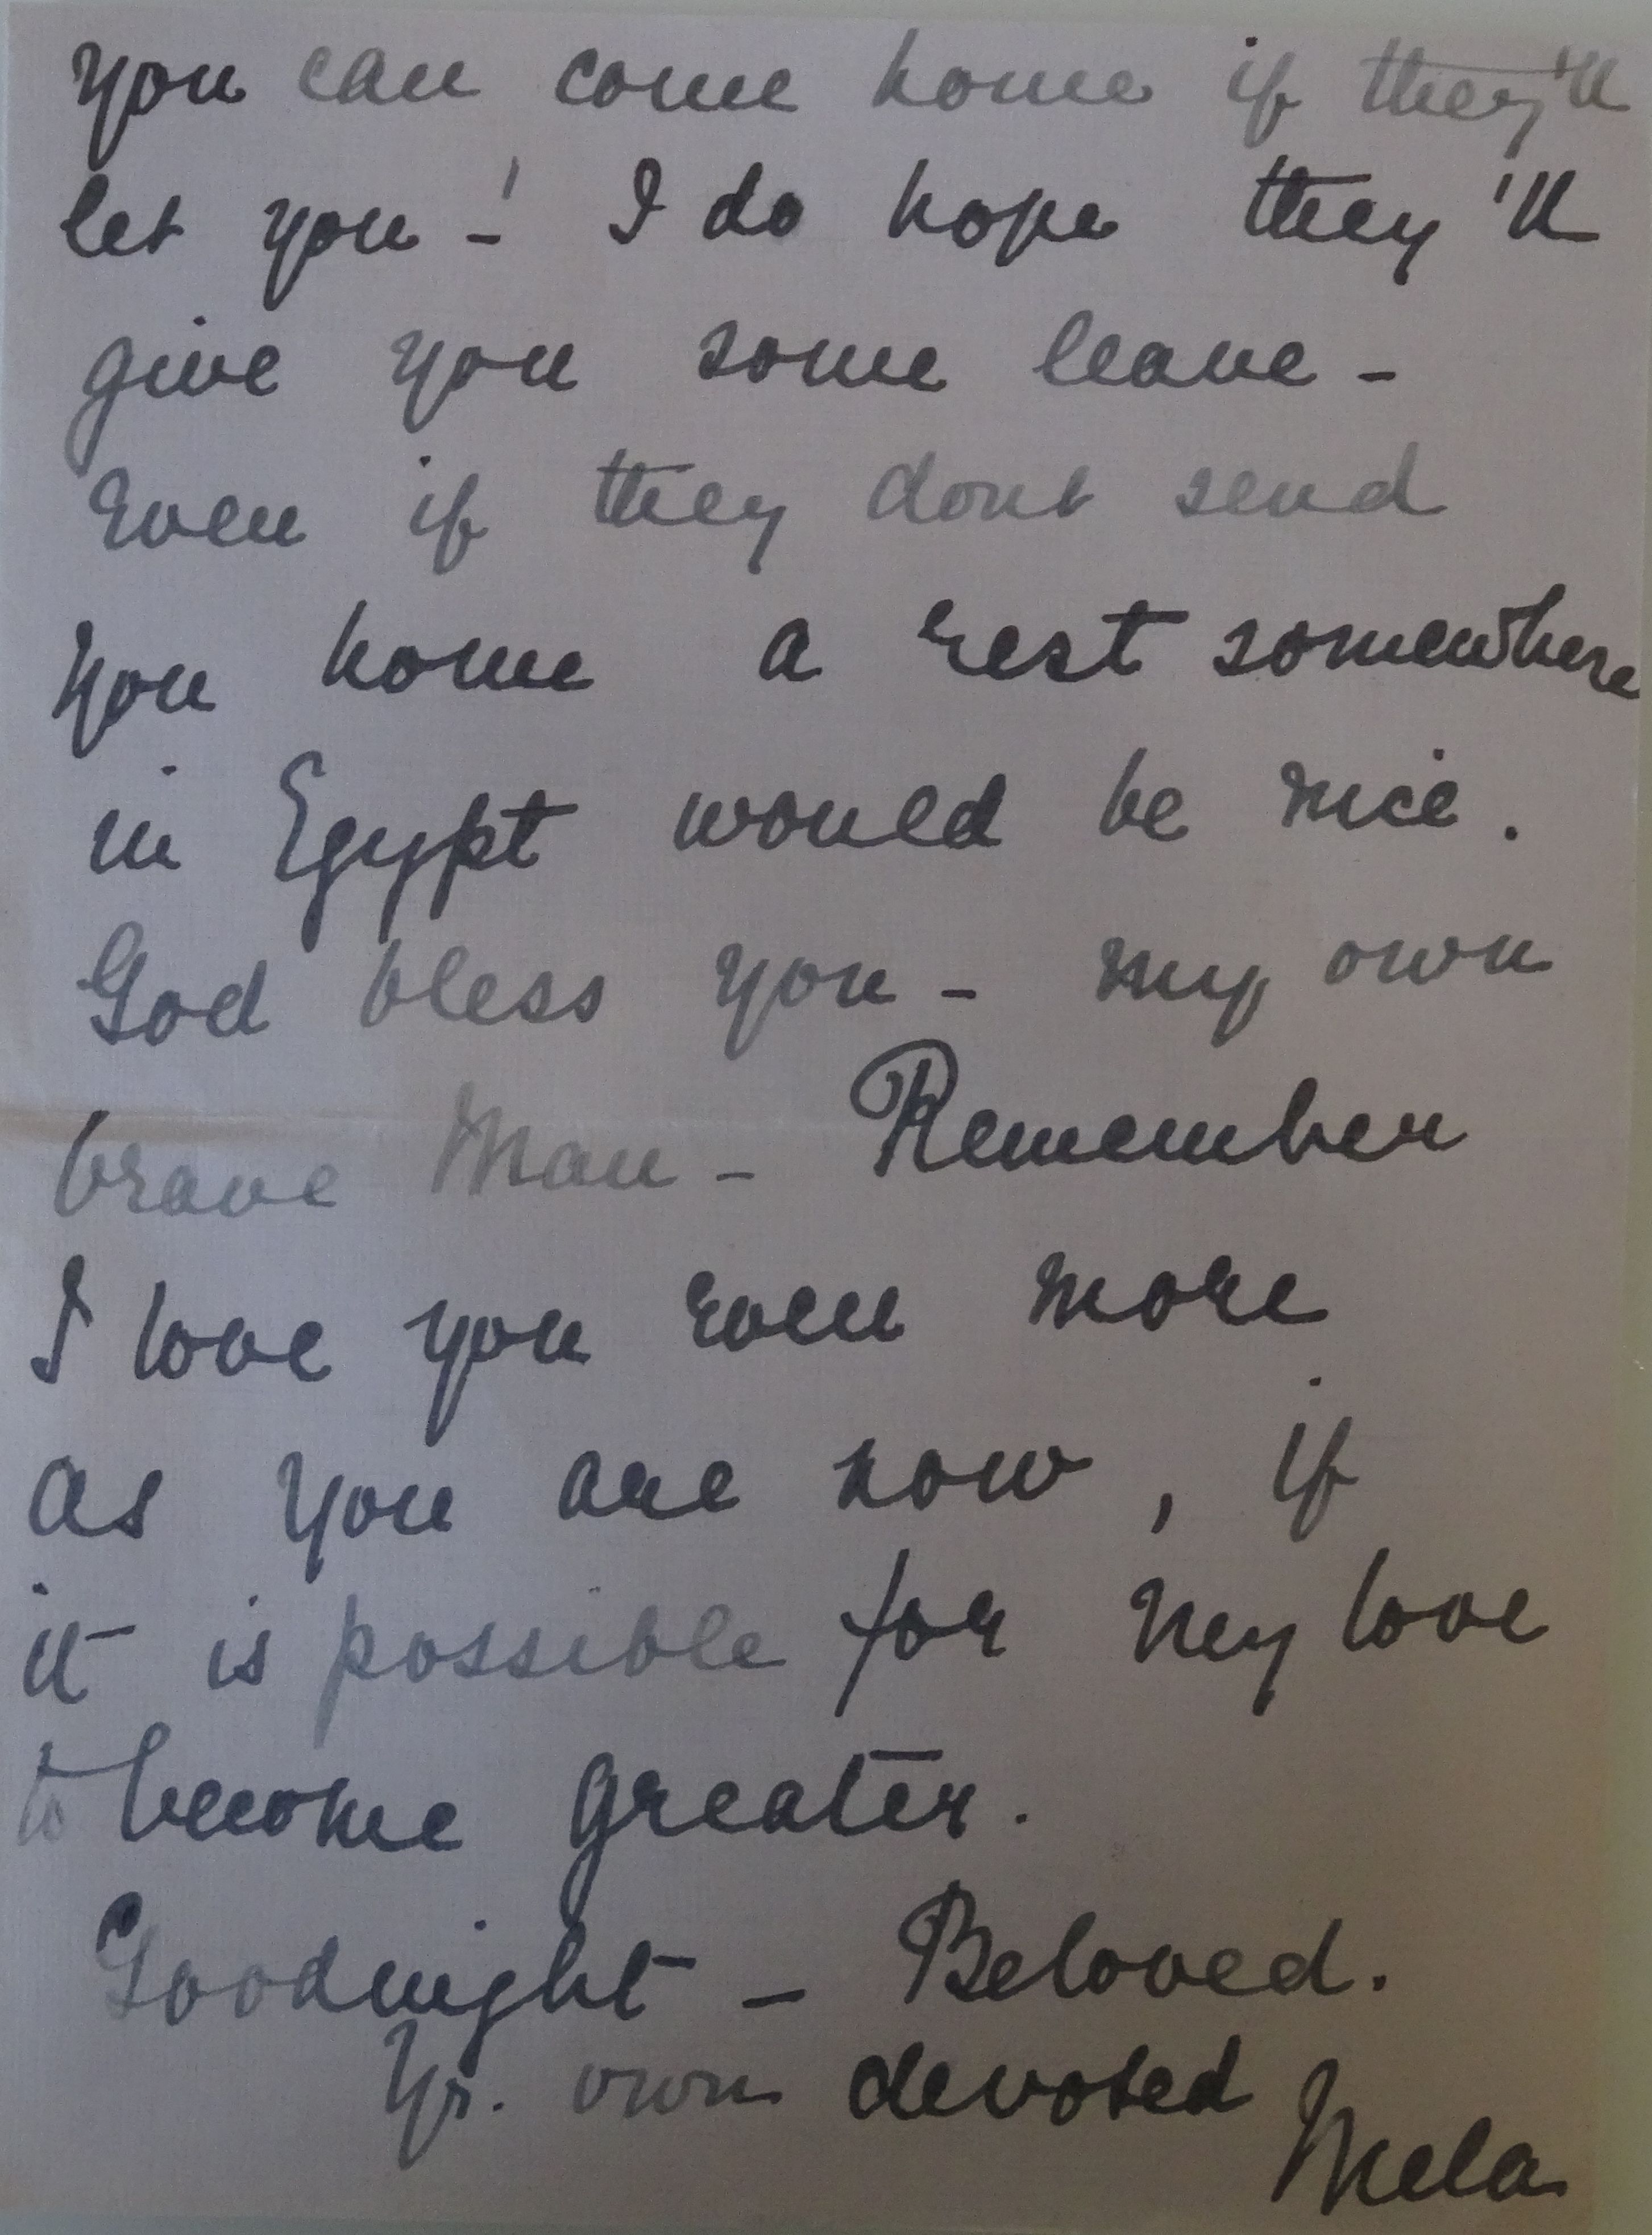 you can come home if they'll
let you -! I do hope they'll
give you some leave -
Even if they dont send
you home a rest somewhere
in Egypt would be nice.
God bless you - my own
brave Man - Remember
I love you even more
as you are now, if
it is possible for my love
to become greater.
Goodnight - Beloved.
Yr. own devoted
Mela